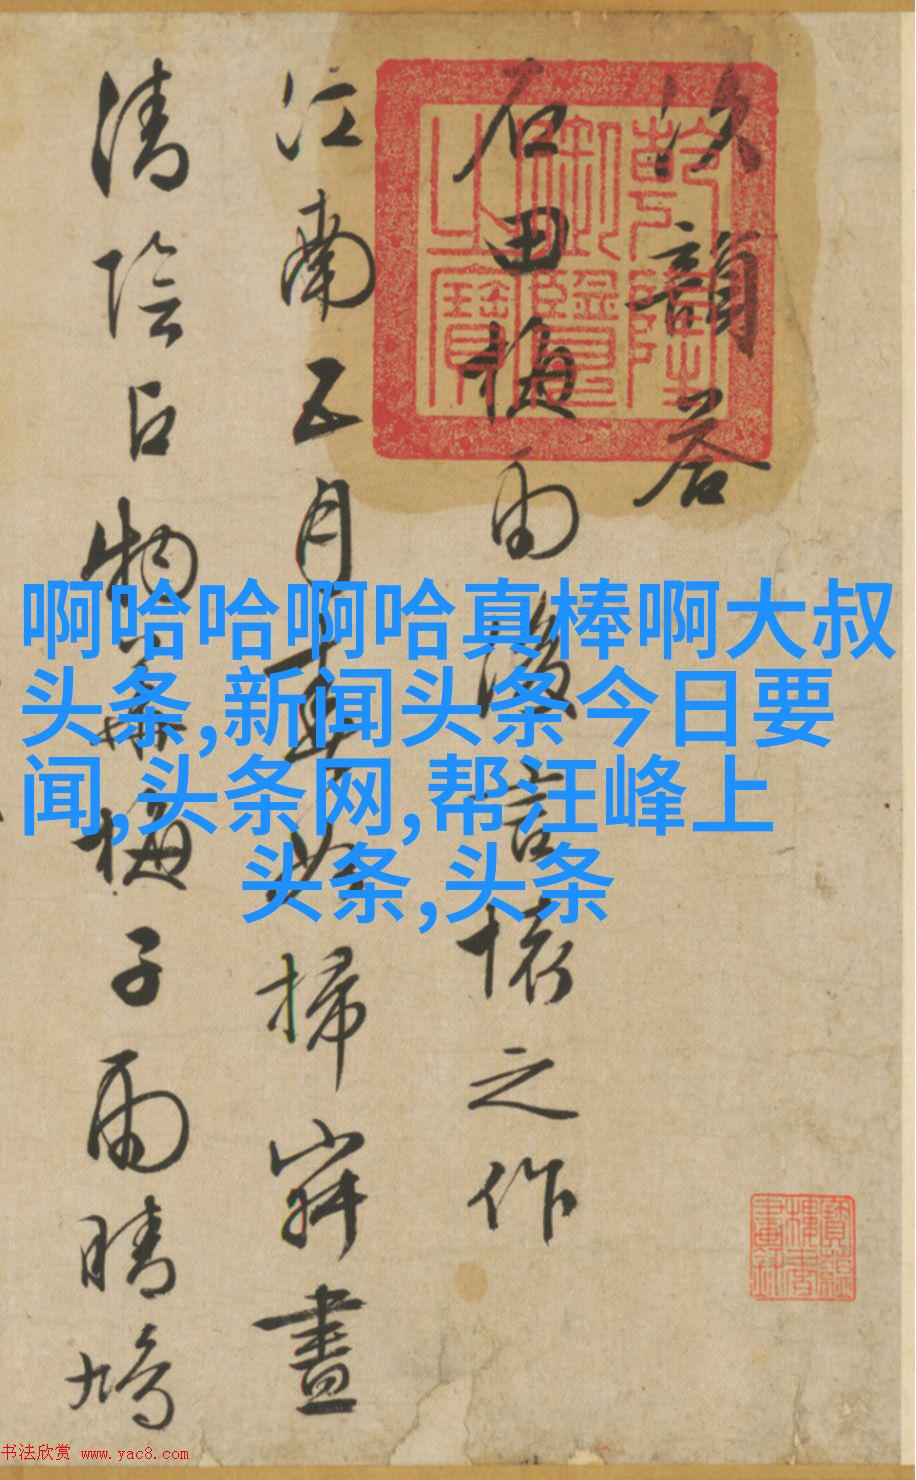 次韻答
石田梅雨後言懷之作
江南五月
掃
畫
清陰
梅子雨晴鳩
乾隆
御覽
之寶
啊哈哈啊哈真棒啊大叔
头条,新闻头条今日要
闻,头条网,帮汪峰上
头条,头条
书法欣赏 www.yac8.com